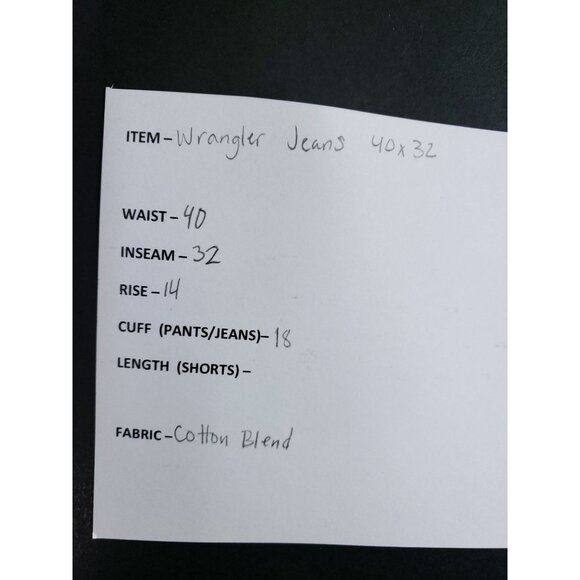 ITEM – Wrangler Jeans 40x32
WAIST – 40
INSEAM – 32
RISE – 14
CUFF (PANTS/JEANS)– 18
LENGTH (SHORTS) –
FABRIC – Cotton Blend